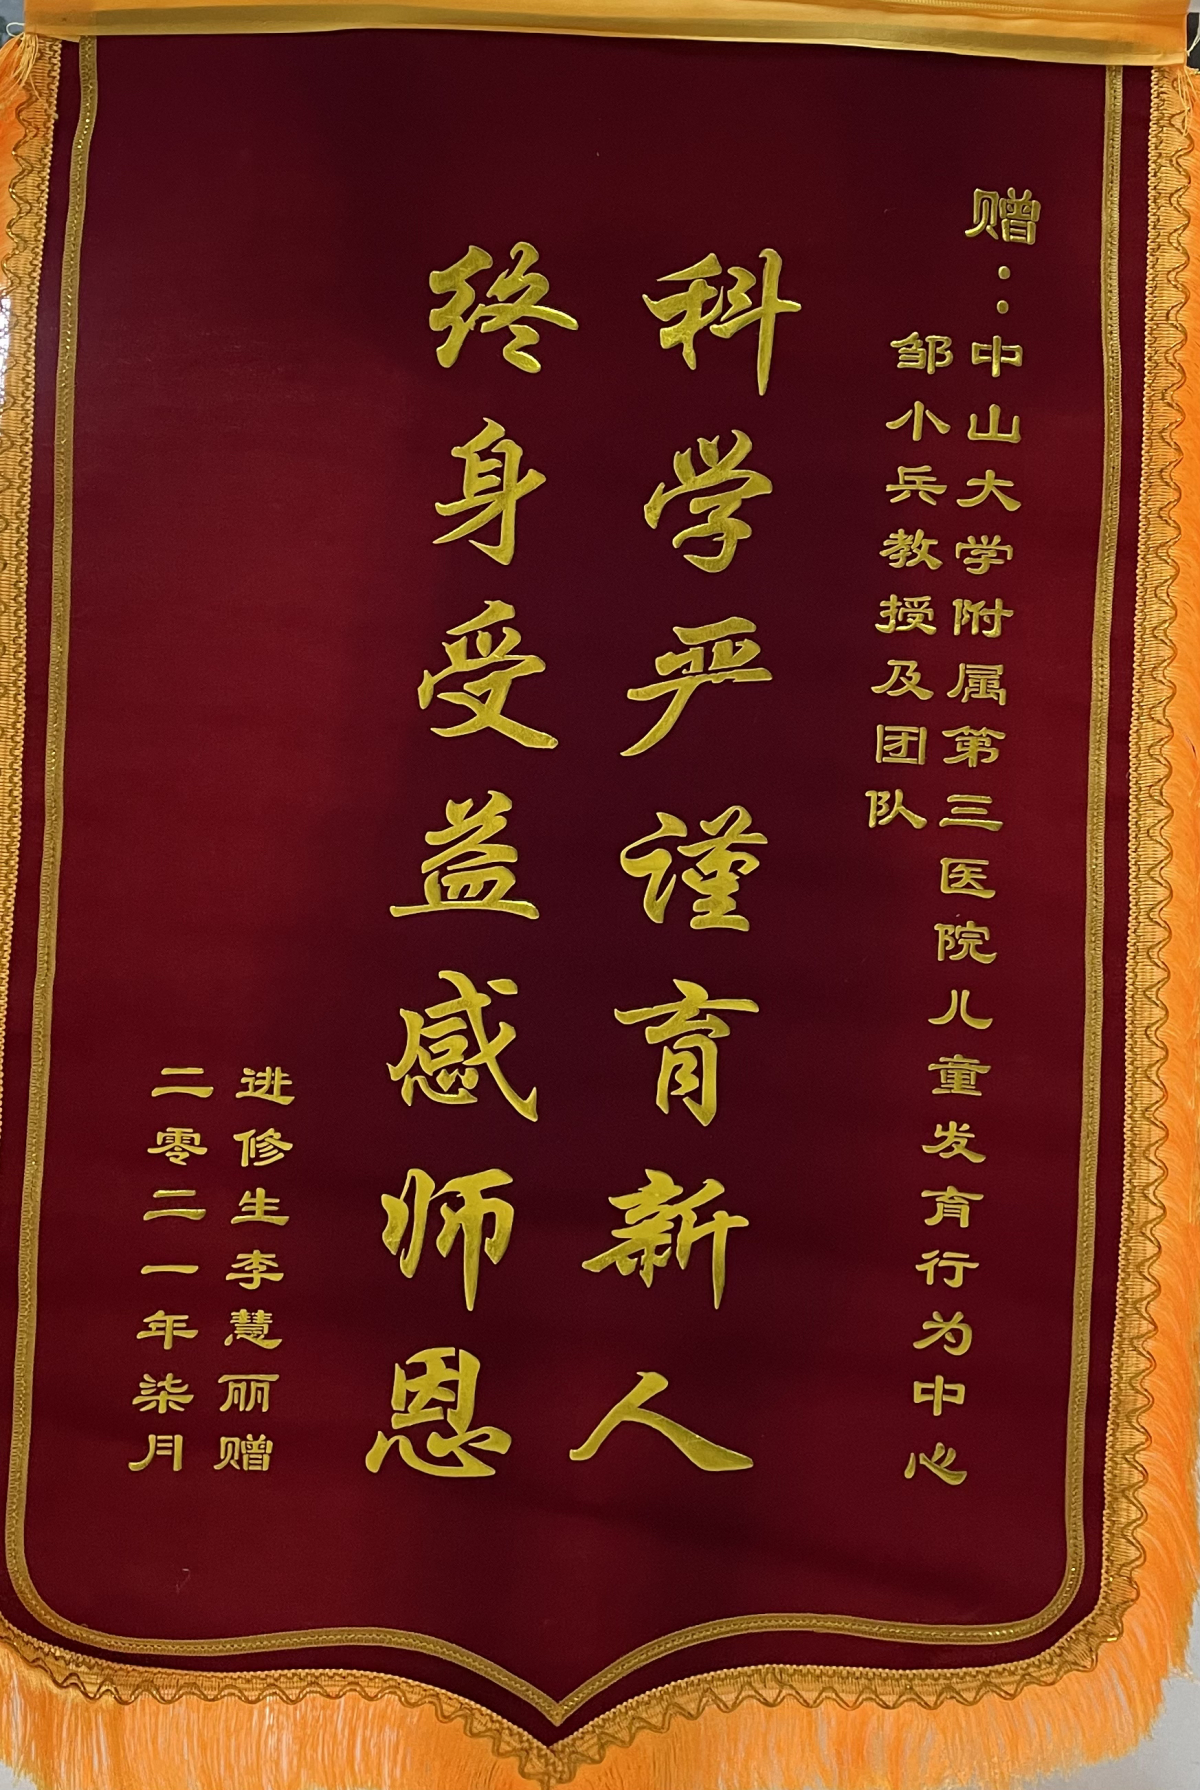 赠：中山大学附属第三医院儿童发育行为中心
邹小兵教授及团队
科学严谨育新人
终身受益感师恩
进修生李慧丽赠
二零二一年柒月